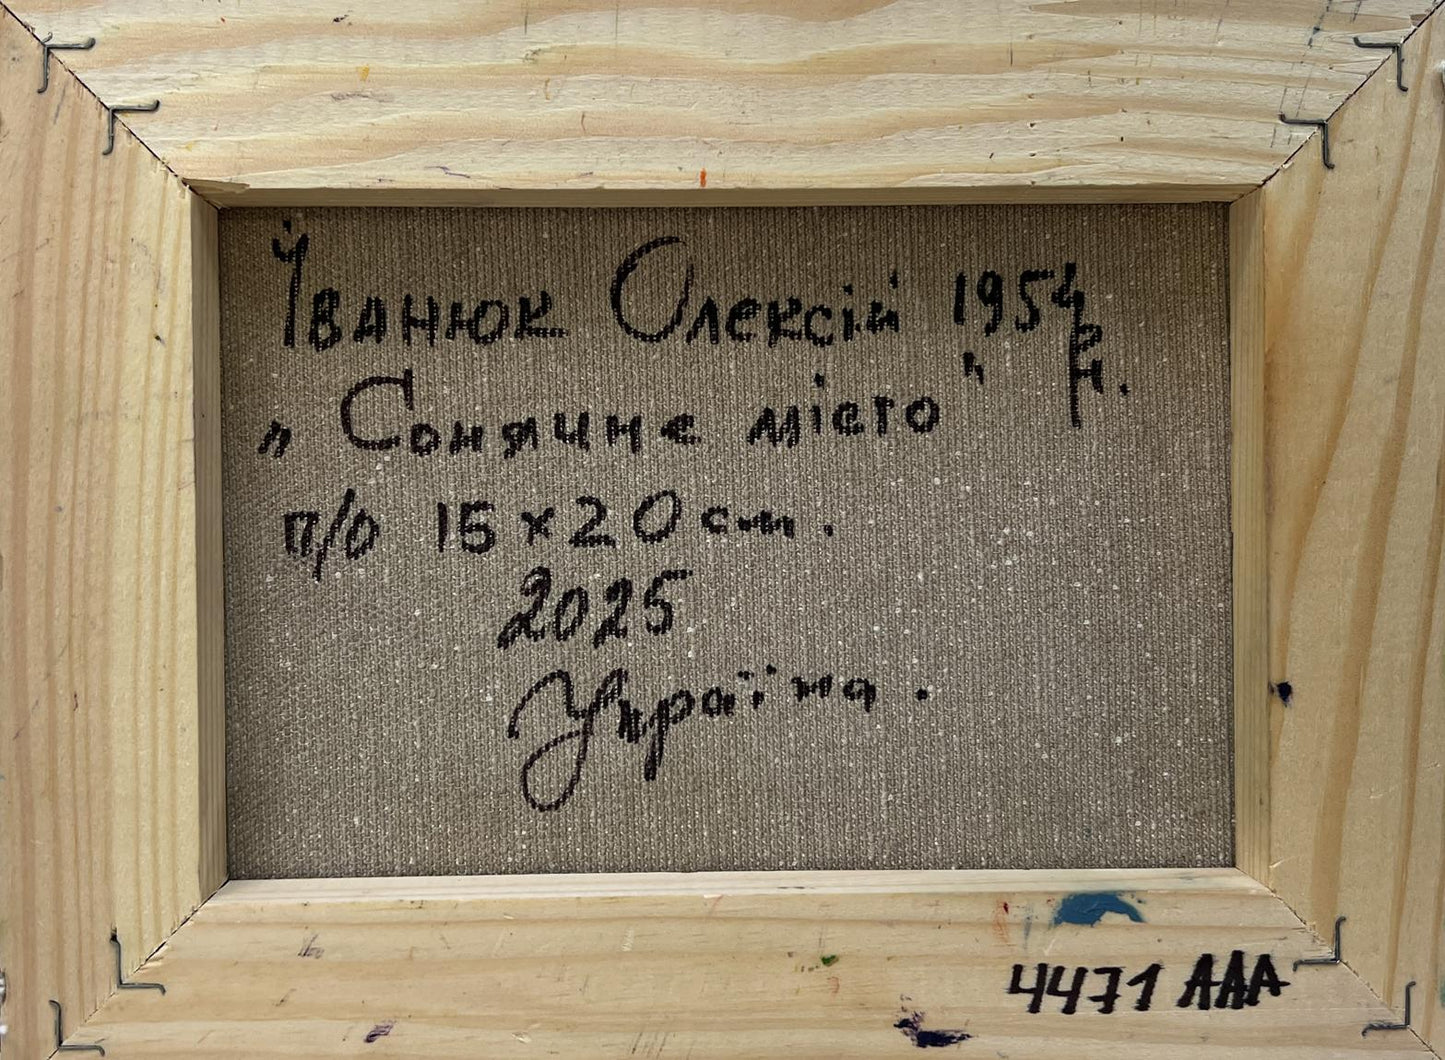 Іванюк Олексій 1954 р.н.
„Сонячне місто"
п/о 15×20 см.
2025
Україна.
4471 ААА